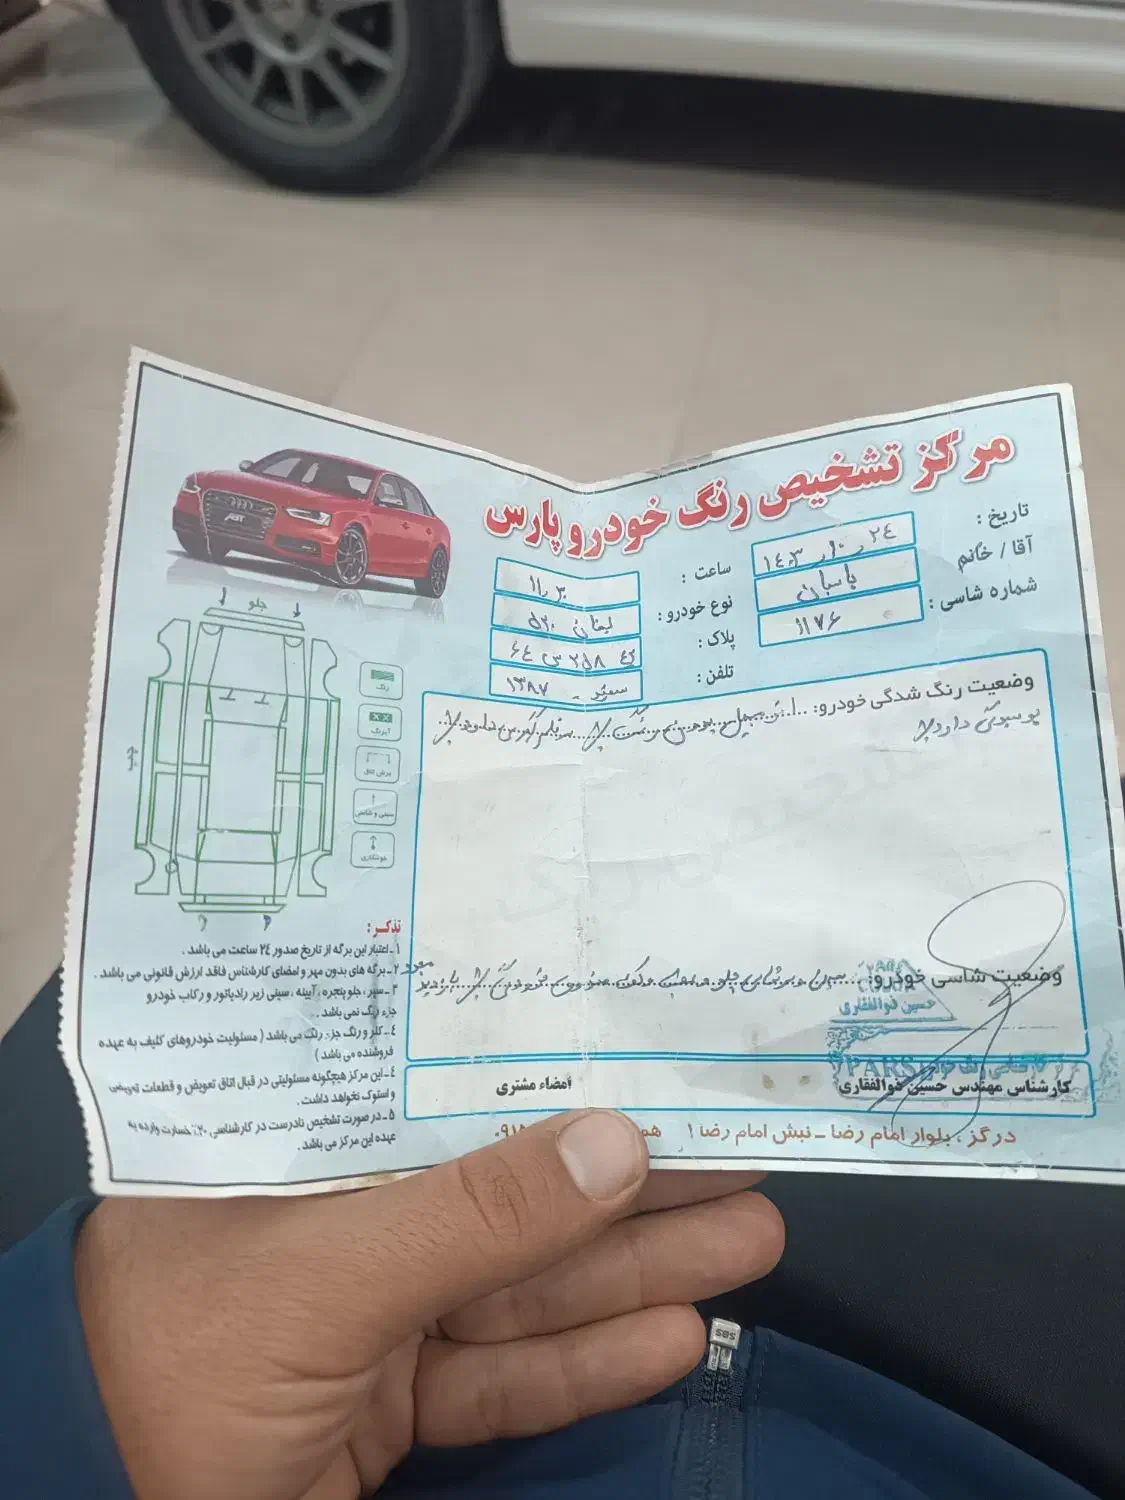 مرکز تشخیص رنگ خودرو پارس
تاریخ : ۱۴۰۳٫۱۰٫۲۴
آقا / خانم پاسبان
شماره شاسی : ۱۱۷۶
ساعت : ۱۱٫۳۰
نوع خودرو : لیفان ۵۲۰
پلاک : ۲۵۸ س ۶۴
تلفن : سفید - ۱۳۸۷
ABT
جلو
رنگ
آبرنگ
برش اتاق
سینی و شاسی
جوشکاری
عقب
وضعیت رنگ شدگی خودرو:
پوسیدگی دارد
وضعیت شاسی خودرو:
بازدید
حسین ذوالفقاری
PARS
کارشناس مهندس حسین ذوالفقاری
امضاء مشتری
تذکـر :
۱ ـ اعتبار این برگه از تاریخ صدور ۲٤ ساعت می باشد .
۲ ـ برگه های بدون مهر و امضای کارشناس فاقد ارزش قانونی می باشد .
۳ ـ سپر ، جلو پنجره ، آیینه ، سینی زیر رادیاتور و رکاب خودرو
جزء رنگ نمی باشد .
٤ ـ کلر و رنگ جزء رنگ می باشد ( مسئولیت خودروهای کلیف به عهده
فروشنده می باشد )
٤ ـ این مرکز هیچگونه مسئولیتی در قبال اتاق تعویض و قطعات تعویضی
و استوک نخواهد داشت .
۵ ـ در صورت تشخیص نادرست در کارشناسی ۲۰٪ خسارت وارده به
عهده این مرکز می باشد .
درگز ، بلوار امام رضا ـ نبش امام رضا ۱
۰۹۱۵
SBS